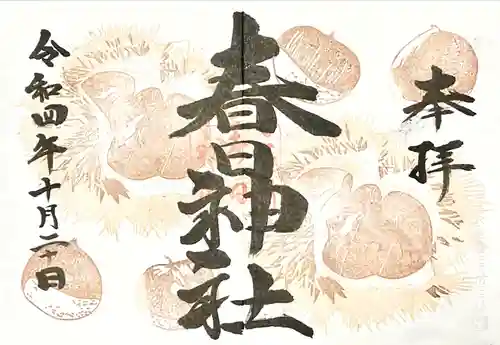 奉拝
春日神社
令和四年十月二十日